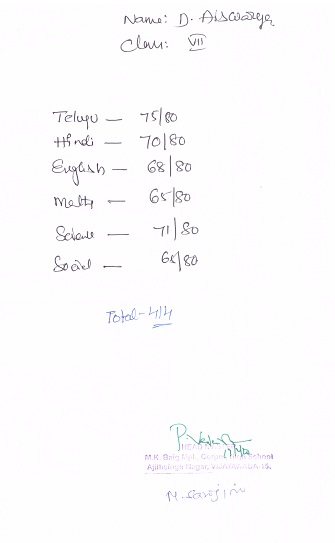 Name: D. Aiswarya
Class: VII
Telugu — 75/80
Hindi — 70/80
English — 68/80
Maths — 65/80
Science — 71/80
Social — 65/80
Total - 414
HEAD
M.K. Baig Mpl. Corpn. High School
Ajithsingh Nagar, VIJAYAWADA-15.
M. Sarojini